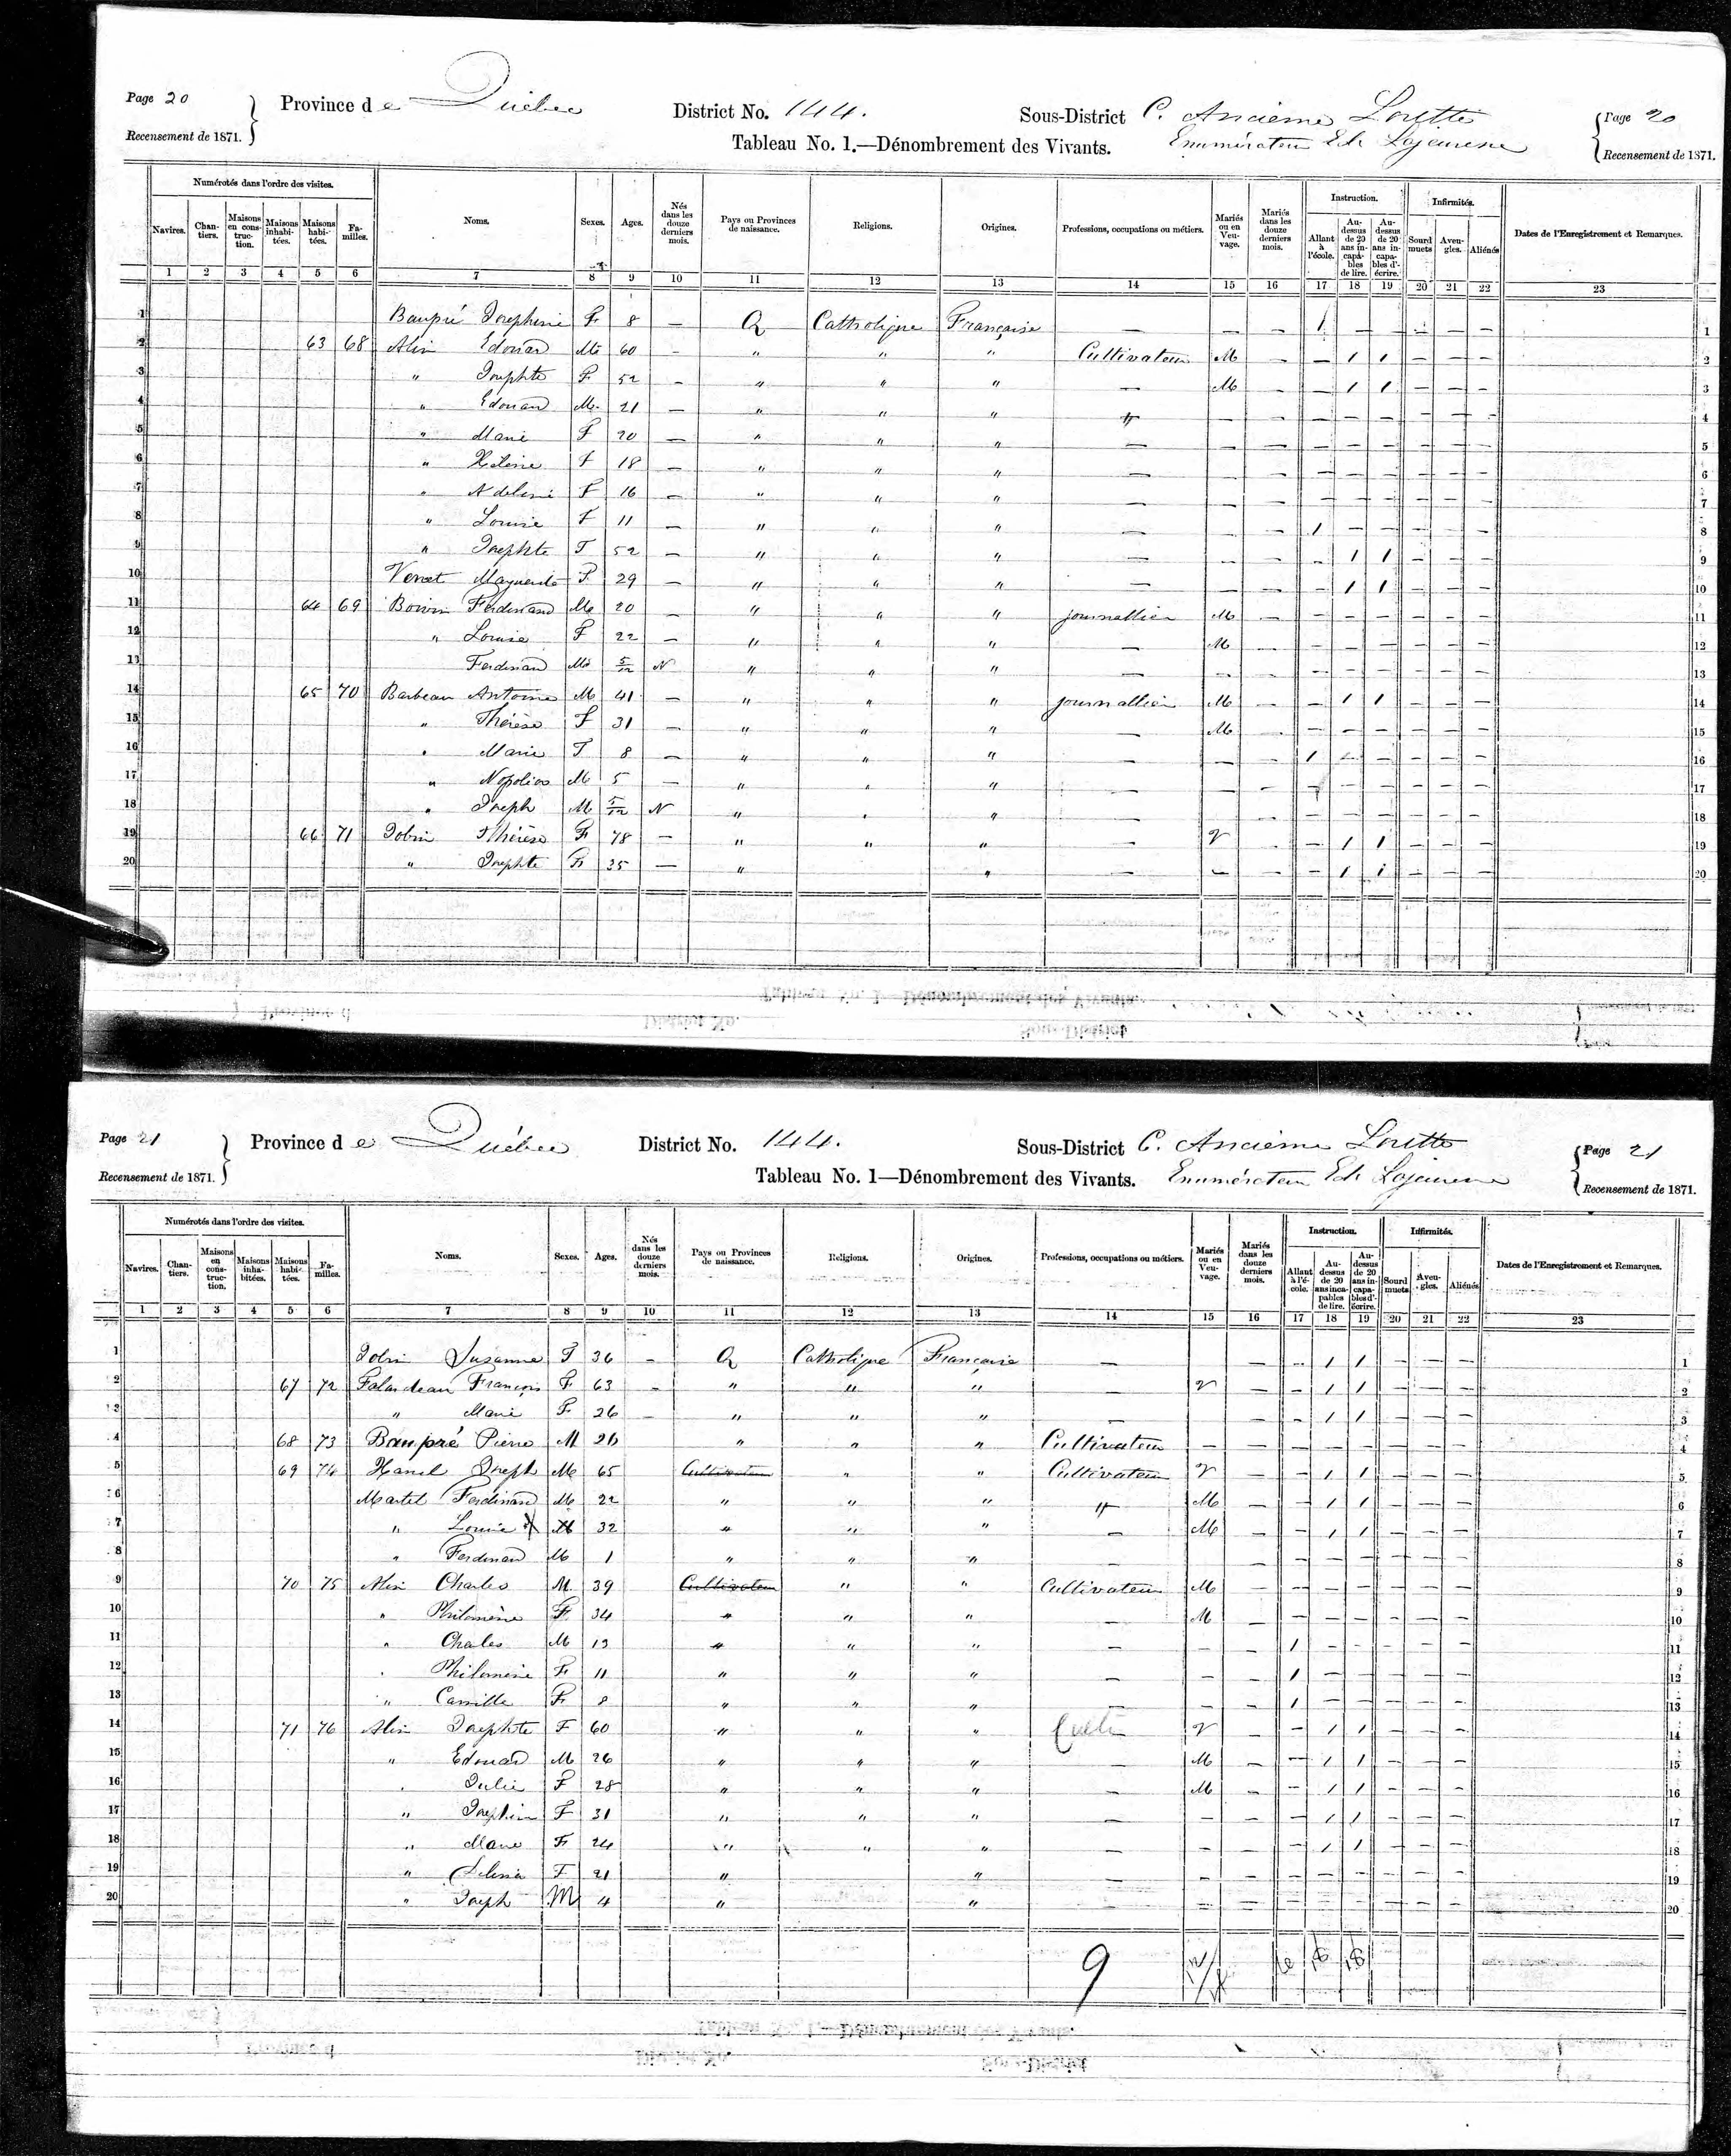 Page 20 Province de Québec District No. 144. Sous-District C. Ancienne Lorette Page 20
Recensement de 1871. Tableau No. 1.—Dénombrement des Vivants. Enumérateur Ed. Lajeunesse Recensement de 1871.
Numérotés dans l'ordre des visites. Noms. Sexes. Ages. Nés dans les douze derniers mois. Pays ou Provinces de naissance. Religions. Origines. Professions, occupations ou métiers. Mariés ou en Veuvage. Mariés dans les douze derniers mois. Instruction. Infirmités. Dates de l'Enregistrement et Remarques.
Navires. Chantiers. Maisons en construction. Maisons inhabitées. Maisons habitées. Familles. Allant à l'école. Au-dessus de 20 ans incapables de lire. Au-dessus de 20 ans incapables d'écrire. Sourd muets Aveugles. Aliénés
1 2 3 4 5 6 7 8 9 10 11 12 13 14 15 16 17 18 19 20 21 22 23
1 Baupré Josephine F 8 — Q Catholique Française — — — 1 — — — — — 1
2 63 68 Alin Édouar M 60 — " " " Cultivateur M — — 1 1 — — — 2
3 " Josephte F 52 — " " " — M — — 1 1 — — — 3
4 " Édouar M 21 — " " " " — — — — — — — — 4
5 " Marie F 20 — " " " — — — — — — — — — 5
6 " Héline F 18 — " " " — — — — — — — — — 6
7 " Adeline F 16 — " " " — — — — — — — — — 7
8 " Louise F 11 — " " " — — — 1 — — — — — 8
9 " Josephte F 52 — " " " — — — — 1 1 — — — 9
10 Marguerite F 29 — " " " — — — — 1 1 — — — 10
11 64 69 Boivin Ferdinand M 20 — " " " journallier M — — — — — — — 11
12 " Louise F 22 — " " " — M — — — — — — — 12
13 Ferdinan M 5/12 N " " " — — — — — — — — — 13
14 65 70 Barbeau Antoine M 41 — " " " journallier M — — 1 1 — — — 14
15 " Thérèse F 31 — " " " — M — — — — — — — 15
16 " Marie F 8 — " " " — — — 1 — — — — — 16
17 " Napolion M 5 — " " " — — — — — — — — — 17
18 " Joseph M 5/12 N " " " — — — — — — — — — 18
19 66 71 Jobin Thérèse F 78 — " " " — V — — 1 1 — — — 19
20 " Josephte F 35 — " " — — — — 1 1 — — — 20
Page 21 Province de Québec District No. 144. Sous-District C. Ancienne Lorette Page 21
Recensement de 1871. Tableau No. 1—Dénombrement des Vivants. Enumérateur Ed. Lajeunesse Recensement de 1871.
Numérotés dans l'ordre des visites. Noms. Sexes. Ages. Nés dans les douze derniers mois. Pays ou Provinces de naissance. Religions. Origines. Professions, occupations ou métiers. Mariés ou en Veuvage. Mariés dans les douze derniers mois. Instruction. Infirmités. Dates de l'Enregistrement et Remarques.
Navires. Chantiers. Maisons en construction. Maisons inhabitées. Maisons habitées. Familles. Allant à l'école. Au-dessus de 20 ans incapables de lire. Au-dessus de 20 ans incapables d'écrire. Sourd muets Aveugles. Aliénés
1 2 3 4 5 6 7 8 9 10 11 12 13 14 15 16 17 18 19 20 21 22 23
1 Jobin Suzanne F 36 — Q Catholique Française — — — 1 1 — — — 1
2 67 72 Falardeau François F 63 — " " " — V — — 1 1 — — — 2
3 " Marie F 26 — " " " — — — 1 1 — — — 3
4 68 73 Baupré Pierre M 26 " " " Cultivateur — — — — — — — — 4
5 69 74 Hamel Joseph M 65 Cultivateur " " Cultivateur V — — 1 1 — — — 5
6 Martel Ferdinan M 22 " " " " M — — 1 1 — — — 6
7 " Louise M 32 " " " — M — — 1 1 — — — 7
8 " Ferdinan M 1 " " " — — — — — — — — 8
9 70 75 Alin Charles M 39 Cultivateur " " Cultivateur M — — — — — — — 9
10 " Philomène F 34 " " " — M — — — — — — — 10
11 " Charles M 13 " " " — — — 1 — — — — — 11
12 " Philomène F 11 " " " — — — 1 — — — — — 12
13 " Camille F 8 " " " — — — 1 — — — — — 13
14 71 76 Alin Josephte F 60 " " " Culti V — — 1 1 — — — 14
15 " Édouar M 26 " " " — M — — 1 1 — — — 15
16 " Julie F 28 " " " — M — — 1 1 — — — 16
17 " Josephin F 31 " " " — — — — 1 1 — — — 17
18 " Marie F 24 " " " — — — — 1 1 — — — 18
19 " Selina F 21 " " — — — — — — — — — 19
20 " Joseph M 4 " " — — — — — — — — — 20
9